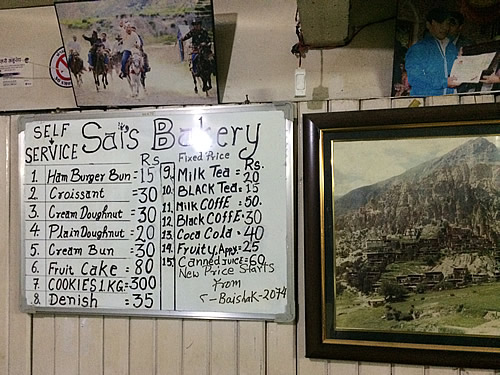 SELF
SERVICE
Sai's Bakery
Rs
1. Ham Burger Bun = 15
2. Croissant = 30
3. Cream Doughnut = 30
4. Plain Doughnut = 20
5. Cream Bun = 30
6. Fruit Cake = 80
7. COOKIES 1.KG = 300
8. Denish = 35
Fixed Price
Rs.
9. Milk Tea = 20
10. BLACK Tea = 15
11. Milk COFFE = 50
12. Black COFFE = 30
13. Coca Cola = 40
14. Fruity, Appy = 25
15. Canned Juice = 60
New Price Starts
From
5-Baishak-2074